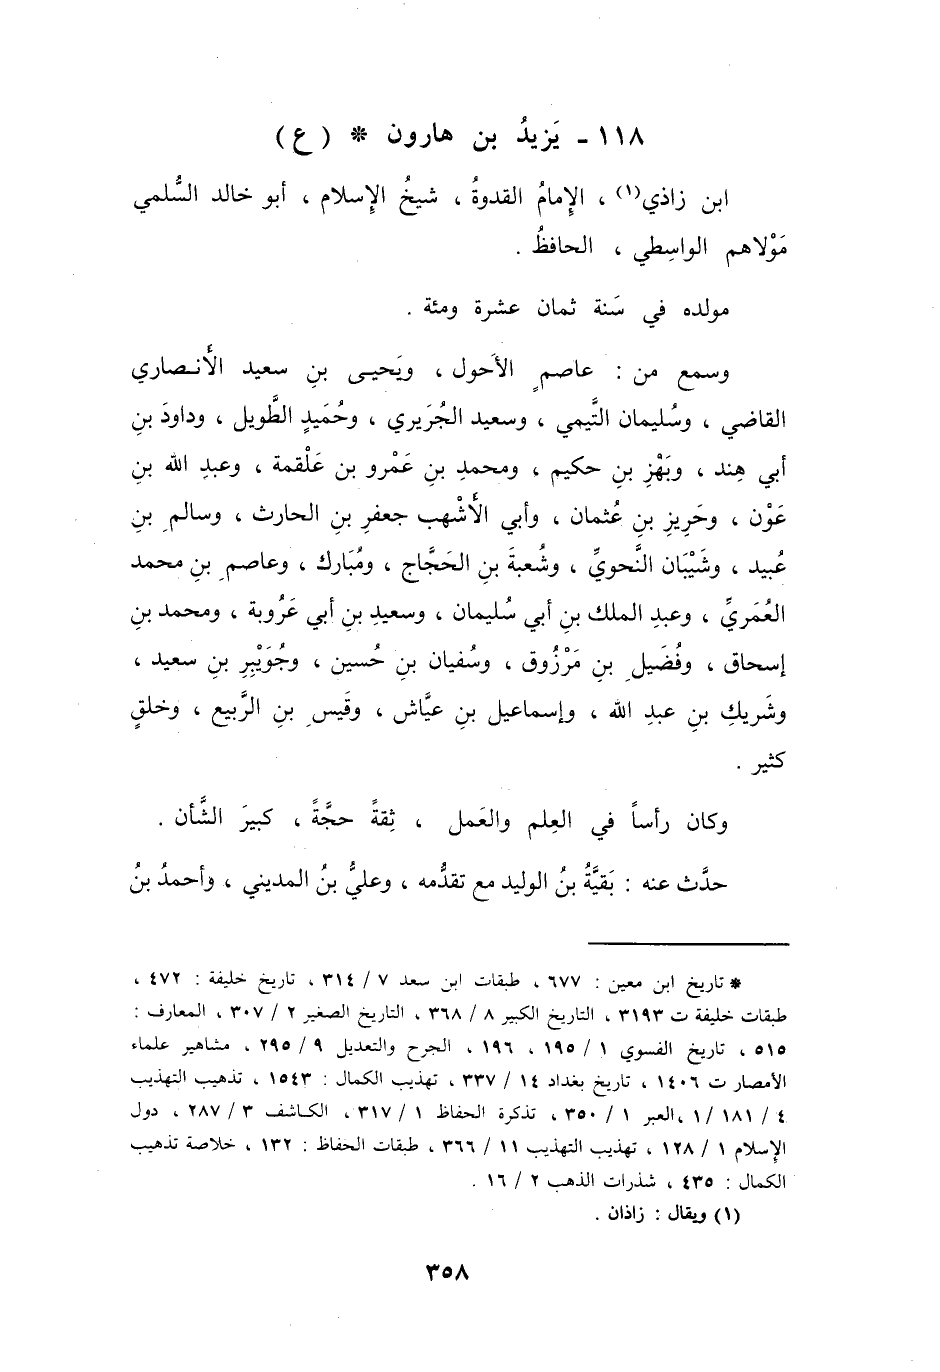 ١١٨ - يَزيدُ بن هارون * ( ع )
ابن زاذي(١) ، الإِمامُ القدوةُ ، شيخُ الإِسلام ، أبو خالد السُّلمي
مَوْلاهم الواسِطي ، الحافظُ .
مولده في سَنة ثمان عشرة ومئة .
وسمع من : عاصمٍ الأَحول ، ويَحيى بنِ سعيد الأَنصاري
القاضي ، وسُليمان التَّيمي ، وسعيد الجُرَيري ، وحُمَيدٍ الطَّويل ، وداودَ بنِ
أبي هِند ، وبَهْزِ بنِ حكيم ، ومحمدِ بنِ عَمْرو بن عَلْقمة ، وعبدِ الله بنِ
عَوْن ، وحَرِيزِ بنِ عُثمان ، وأبي الأَشْهب جعفرِ بنِ الحارث ، وسالم ِ بنِ
عُبيد ، وشَيْبَان النَّحويِّ ، وشُعبةَ بنِ الحَجَّاج ، ومُبَارك ، وعاصم ِ بنِ محمد
العُمَريِّ ، وعبدِ الملك بنِ أبي سُليمان ، وسعيدِ بنِ أبي عَرُوبة ، ومحمد بنِ
إسحاق ، وفُضَيل ِ بنِ مَرْزُوق ، وسُفيان بنِ حُسين ، وجُوَيْبِرِ بنِ سعيد ،
وشَريكِ بنِ عبدِ الله ، وإسماعيل بنِ عيَّاش ، وقَيس ِ بنِ الرَّبيع ، وخلقٍ
كثير .
وكان رأساً في العِلم والعَمل ، ثِقةً حجَّةً ، كبيرَ الشَّأن .
حدَّث عنه : بَقيَّةُ بنُ الوليد مع تقدُّمه ، وعليُّ بنُ المديني ، وأحمدُ بنُ
* تاريخ ابن معين : ٦٧٧ ، طبقات ابن سعد ٧ / ٣١٤ ، تاريخ خليفة : ٤٧٢ ،
طبقات خليفة ت ٣١٩٣ ، التاريخ الكبير ٨ / ٣٦٨ ، التاريخ الصغير ٢ / ٣٠٧ ، المعارف :
٥١٥ ، تاريخ الفسوي ١ / ١٩٥ ، ١٩٦ ، الجرح والتعديل ٩ / ٢٩٥ ، مشاهير علماء
الأمصار ت ١٤٠٦ ، تاريخ بغداد ١٤ / ٣٣٧ ، تهذيب الكمال : ١٥٤٣ ، تذهيب التهذيب
٤ / ١٨١ / ١ ،العبر ١ / ٣٥٠ ، تذكرة الحفاظ ١ / ٣١٧ ، الكاشف ٣ / ٢٨٧ ، دول
الإسلام ١ / ١٢٨ ، تهذيب التهذيب ١١ / ٣٦٦ ، طبقات الحفاظ : ١٣٢ ، خلاصة تذهيب
الكمال : ٤٣٥ ، شذرات الذهب ٢ / ١٦ .
(١) ويقال : زاذان .
٣٥٨